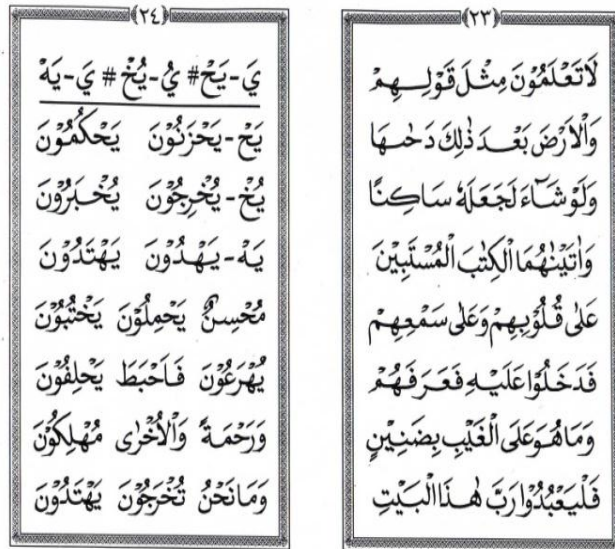 ﴿٢٣﴾
لَاتَعْلَمُوْنَ مِثْلَ قَوْلِـهِمْ
وَالْاَرْضَ بَعْدَ ذٰلِكَ دَحٰىهَا
وَلَوْشَآءَ لَجَعَلَهٗ سَاكِنًا
وَاٰتَيْنٰهُمَا الْكِتٰبَ الْمُسْتَبِيْنَ
عَلٰى قُلُوْبِهِمْ وَعَلٰى سَمْعِهِمْ
فَدَخَلُوْا عَلَيْهِ فَعَرَفَهُمْ
وَمَا هُوَ عَلَى الْغَيْبِ بِضَنِيْنٍ
فَلْيَعْبُدُوْا رَبَّ هٰذَا الْبَيْتِ
﴿٢٤﴾
يَ-يَحْ# يُ-يُخْ# يَ-يَهْ
يَحْ-يَحْزَنُوْنَ يَحْكُمُوْنَ
يُخْ-يُخْرِجُوْنَ يُخْبَرُوْنَ
يَهْ-يَهْدُوْنَ يَهْتَدُوْنَ
مُحْسِنٌ يَحْمِلُوْنَ يَخْتُبُوْنَ
يُهْرَعُوْنَ فَاَحْبَطَ يَحْلِفُوْنَ
وَرَحْمَةً وَالْاُخْرٰى مُهْلِكُوْنَ
وَمَانَحْنُ تُخْرَجُوْنَ يَهْتَدُوْنَ